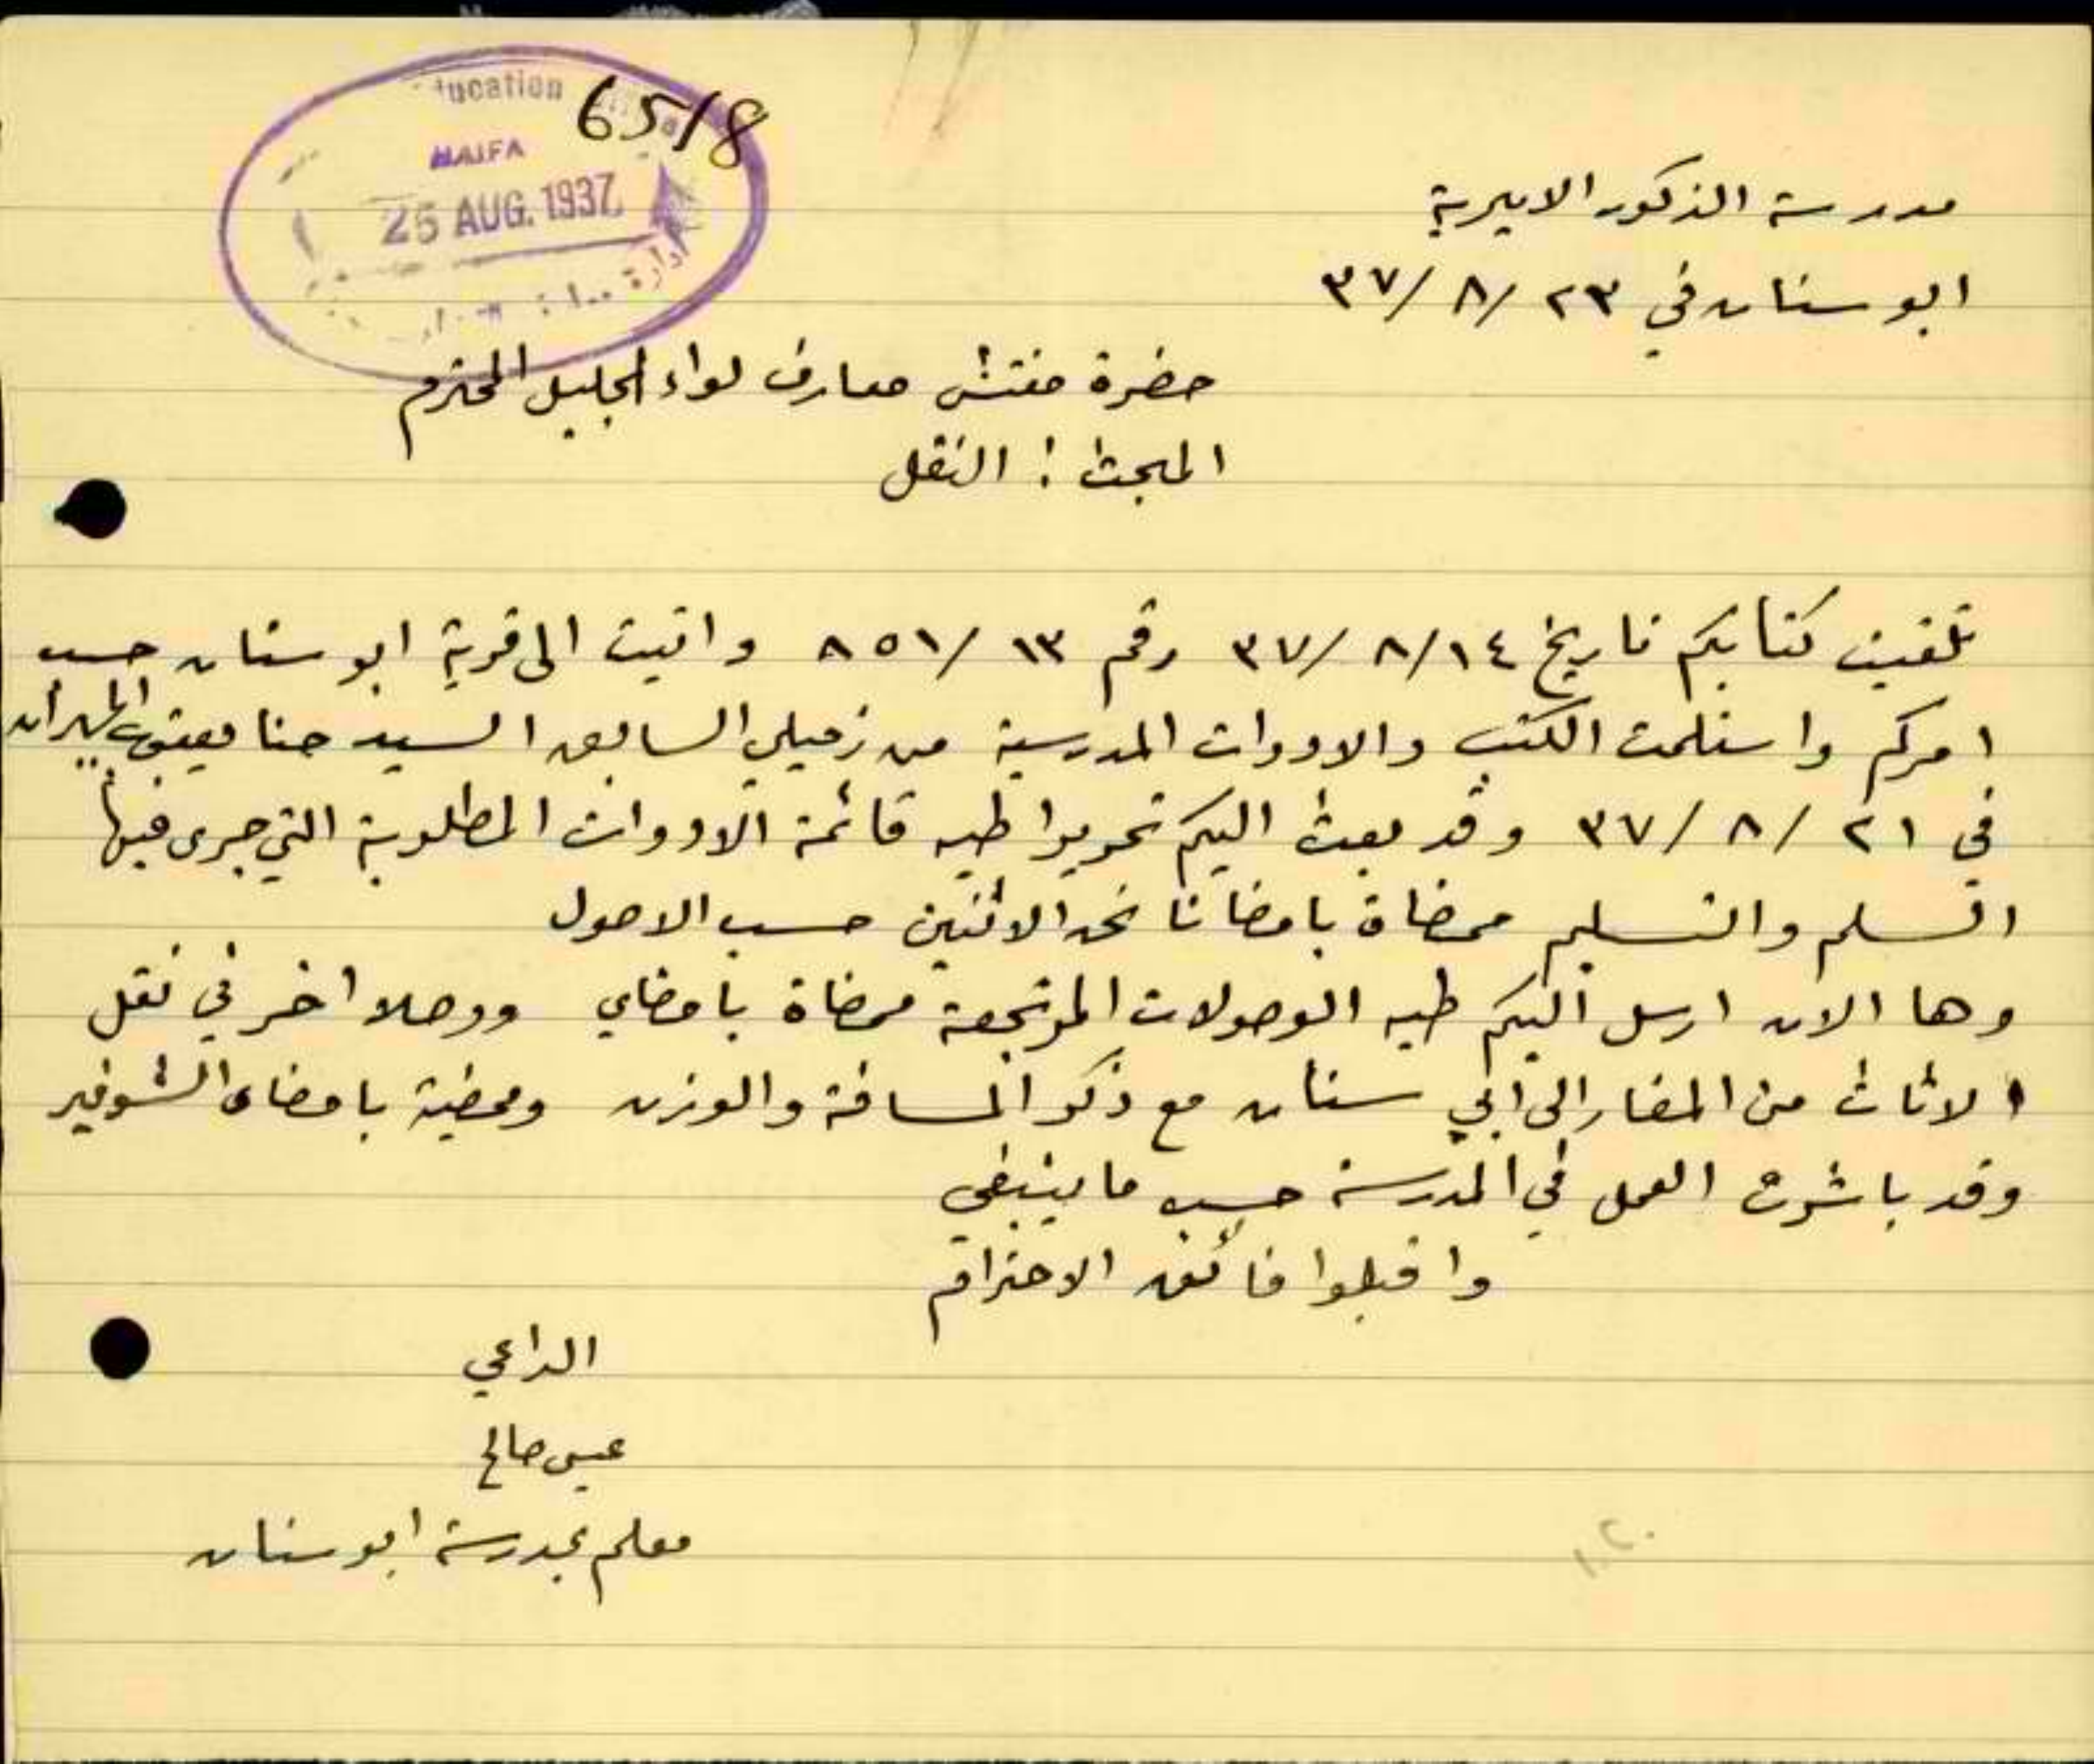 65/8
ucation
HAIFA
25 AUG. 1937
ادارة
مدرسة الذكور الاميرية
ابو سنان في ٢٣ /٨/ ٣٧
حضرة مفتش معارف لواء الجليل المحترم
المبحث : النقل
تلقيت كتابكم تاريخ ٨/١٤ /٣٧ رقم ١٣ /٨٥١ واتيت الى قرية ابو سنان حسب
امركم واستلمت الكتب والادوات المدرسية من زميلي السابق السيد حنا يعقوب
في ٢١ /٨/ ٣٧ وقد بعث اليكم تحريرا طيه قائمة الادوات المطلوبة التي جرى فيها
التسلم والتسليم ممضاة بامضانا نحن الاثنين حسب الاصول
وها الان ارسل اليكم طيه الوصولات المرتجعة ممضاة بامضاي ووصلا اخر في نقل
الاثاث من المغار الى ابي سنان مع ذكر المسافة والوزن وممضية بامضاء الشوفير
وقد باشرت العمل في المدرسة حسب ما ينبغي
واقبلوا فائق الاحترام
الداعي
عيسى صالح
معلم بمدرسة ابو سنان